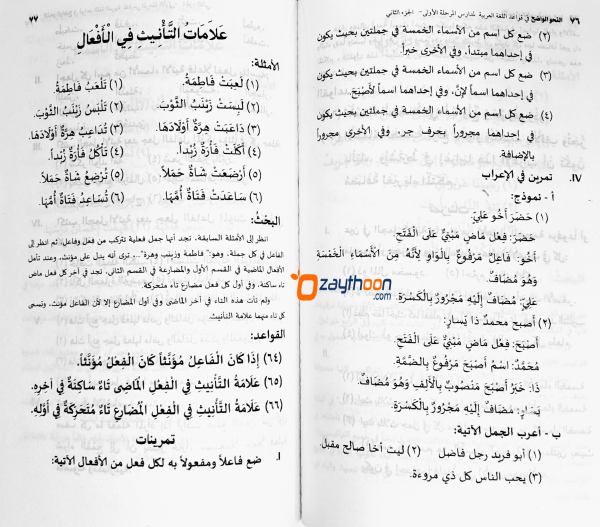 ٧٦ النحو الواضح في قواعد اللغة العربية لمدارس المرحلة الأولى - الجزء الثاني
(٢) ضع كل اسم من الأسماء الخمسة في جملتين بحيث يكون
في إحداهما مبتدأ، وفي الأخرى خبراً.
(٣) ضع كل اسم من الأسماء الخمسة في جملتين بحيث يكون
في إحداهما اسماً لإنَّ، وفي إحداهما اسماً لأَصْبَحَ.
(٤) ضع كل اسم من الأسماء الخمسة في جملتين بحيث يكون
في إحداهما مجروراً بحرف جر، وفي الأخرى مجروراً
بالإضافة.
IV. تمرين في الإعراب
أ - نموذج:
(١) حَضَرَ أَخُو عَلِيٍّ.
حَضَرَ: فِعْل مَاضٍ مَبْنِيٌّ عَلَى الْفَتْحِ
أَخُو: فَاعِلٌ مَرْفُوعٌ بِالْوَاوِ لأَنَّهُ مِنَ الأَسْمَاءِ الْخَمْسَةِ
وَهُوَ مُضَافٌ.
عَلِيٍّ: مُضَافٌ إِلَيْهِ مَجْرُورٌ بِالْكَسْرَةِ.
(٢) أصبح محمدٌ ذا يَسارٍ:
أَصْبَحَ: فِعْل مَاضٍ مَبْنِيٌّ عَلَى الْفَتْحِ.
مُحَمَّدٌ: اسْمُ أَصْبَحَ مَرْفُوعٌ بِالضَّمَّةِ.
ذَا: خَبَرُ أَصْبَحَ مَنْصُوبٌ بِالأَلِفِ وَهُوَ مُضَافٌ.
يَسَارٍ: مضَافٌ إلَيْهِ مَجْرُورٌ بِالْكَسْرَةِ.
ب - أعرب الجمل الآتية:
(١) أبو فريد رجل فاضل (٢) ليت أخا صالح مقبل
(٣) يحب الناس كل ذي مروءة.
٧٧
عَلاَمَاتُ التَّأْنِيثِ فِي الْأَفْعَالِ
الأمثلة:
(١) لَعِبَتْ فَاطِمَةُ. (١) تَلْعَبُ فَاطِمَةُ.
(٢) لَبِسَتْ زَيْنَبُ الثَّوْبَ. (٢) تَلْبَسُ زَيْنَبُ الثَّوْبَ.
(٣) دَاعَبَتْ هِرَّةٌ أَوْلاَدَهَا. (٣) تُدَاعِبُ هِرَّةٌ أَوْلاَدَهَا.
(٤) أَكَلَتْ فَأْرَةٌ زُبْداً. (٤) تَأْكُلُ فَأْرَةٌ زُبْداً.
(٥) أَرْضَعَتْ شَاةٌ حَمَلاً. (٥) تُرْضِعُ شَاةٌ حَمَلاً.
(٦) سَاعَدَتْ فَتَاةٌ أُمَّهَا. (٦) تُسَاعِدُ فَتَاةٌ أُمَّهَا.
البحث:
انظر إلى الأمثلة السابقة، تجد أنها جمل فعلية تتركب من فعل وفاعل، ثم انظر إلى
الفاعل في كل جملة، وهو: "فاطمة وزينب وهرة" ... ترى أنه يدل على مؤنث، وعند تأمل
الأفعال الماضية في القسم الأول والمضارعة في القسم الثاني، تجد في آخر كل فعل ماض
تاء ساكنة، وفي أول كل فعل مضارع تاء متحركة.
ولم تأت هذه التاء في آخر الماضي وفي أول المضارع إلا لأن الفاعل مؤنث، وتسمى
كل تاء منهما علامة التأنيث
القواعد:
(٦٤) إِذَا كَانَ الْفَاعِلُ مُؤَنَّثاً كَانَ الْفِعْلُ مُؤَنَّثاً.
(٦٥) عَلاَمَةُ التَّأْنِيثِ فِي الْفِعْلِ الْمَاضِي تَاءٌ سَاكِنَةٌ فِي آخِرِهِ.
(٦٦) عَلاَمَةُ التَّأْنِيثِ فِي الْفِعْلِ الْمُضَارِعِ تَاءٌ مُتَحَرِّكَةٌ فِي أَوَّلِهِ.
تمرينات
I. ضع فاعلاً ومفعولاً به لكل فعل من الأفعال الآتية:
zaythoon.com